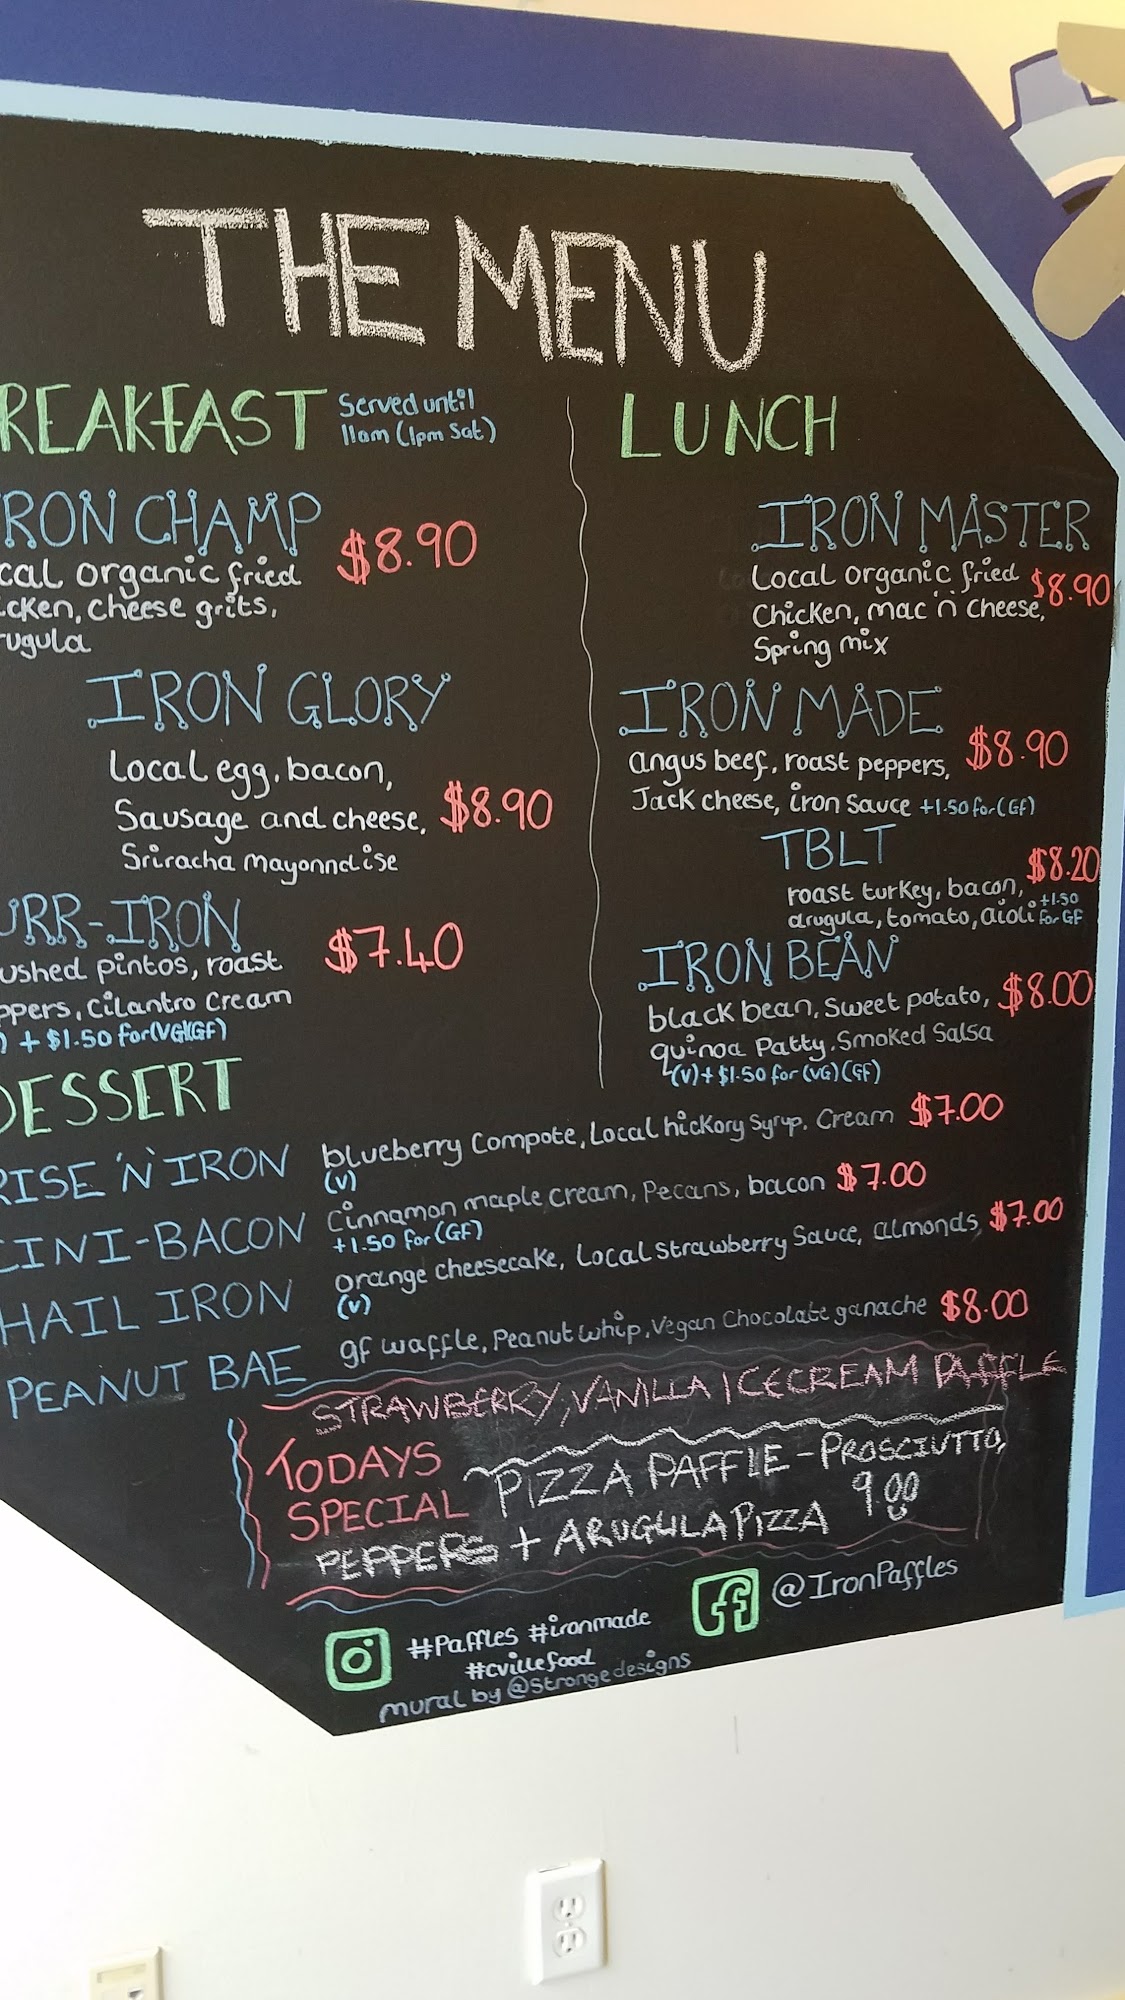 THE MENU
REAKFAST
Served until
11am (1pm Sat)
RON CHAMP
$8.90
cal organic fried
cken, cheese grits,
rugula
IRON GLORY
Local egg, bacon,
Sausage and cheese,
$8.90
Sriracha mayonnaise
URR-IRON
$7.40
ushed pintos, roast
ppers, Cilantro Cream
) + $1.50 for(VG)(GF)
LUNCH
IRON MASTER
Local organic fried
$8.90
Chicken, mac 'n' cheese,
Spring mix
IRON MADE
$8.90
angus beef, roast peppers,
Jack cheese, iron Sauce +1.50 for (GF)
TBLT
$8.20
roast turkey, bacon,
arugula, tomato, aioli
+1.50
for GF
IRON BEAN
$8.00
black bean, Sweet potato,
quinoa Patty. Smoked Salsa
(V) + $1.50 for (VG) (GF)
DESSERT
RISE 'N' IRON
blueberry Compote, Local hickory Syrup, Cream $7.00
(V)
CINI-BACON
Cinnamon maple cream, Pecans, bacon $7.00
+1.50 for (GF)
HAIL IRON
orange cheesecake, Local Strawberry Sauce, almonds, $7.00
(V)
PEANUT BAE
gf waffle, Peanut whip, Vegan Chocolate ganache $8.00
STRAWBERRY, VANILLA ICECREAM PAFFLE
TODAYS
SPECIAL
PIZZA PAFFLE - PROSCIUTTO,
PEPPERS + ARUGULA PIZZA 9.00
@IronPaffles
#Paffles #ironmade
#cvillefood
mural by @Strongedesigns